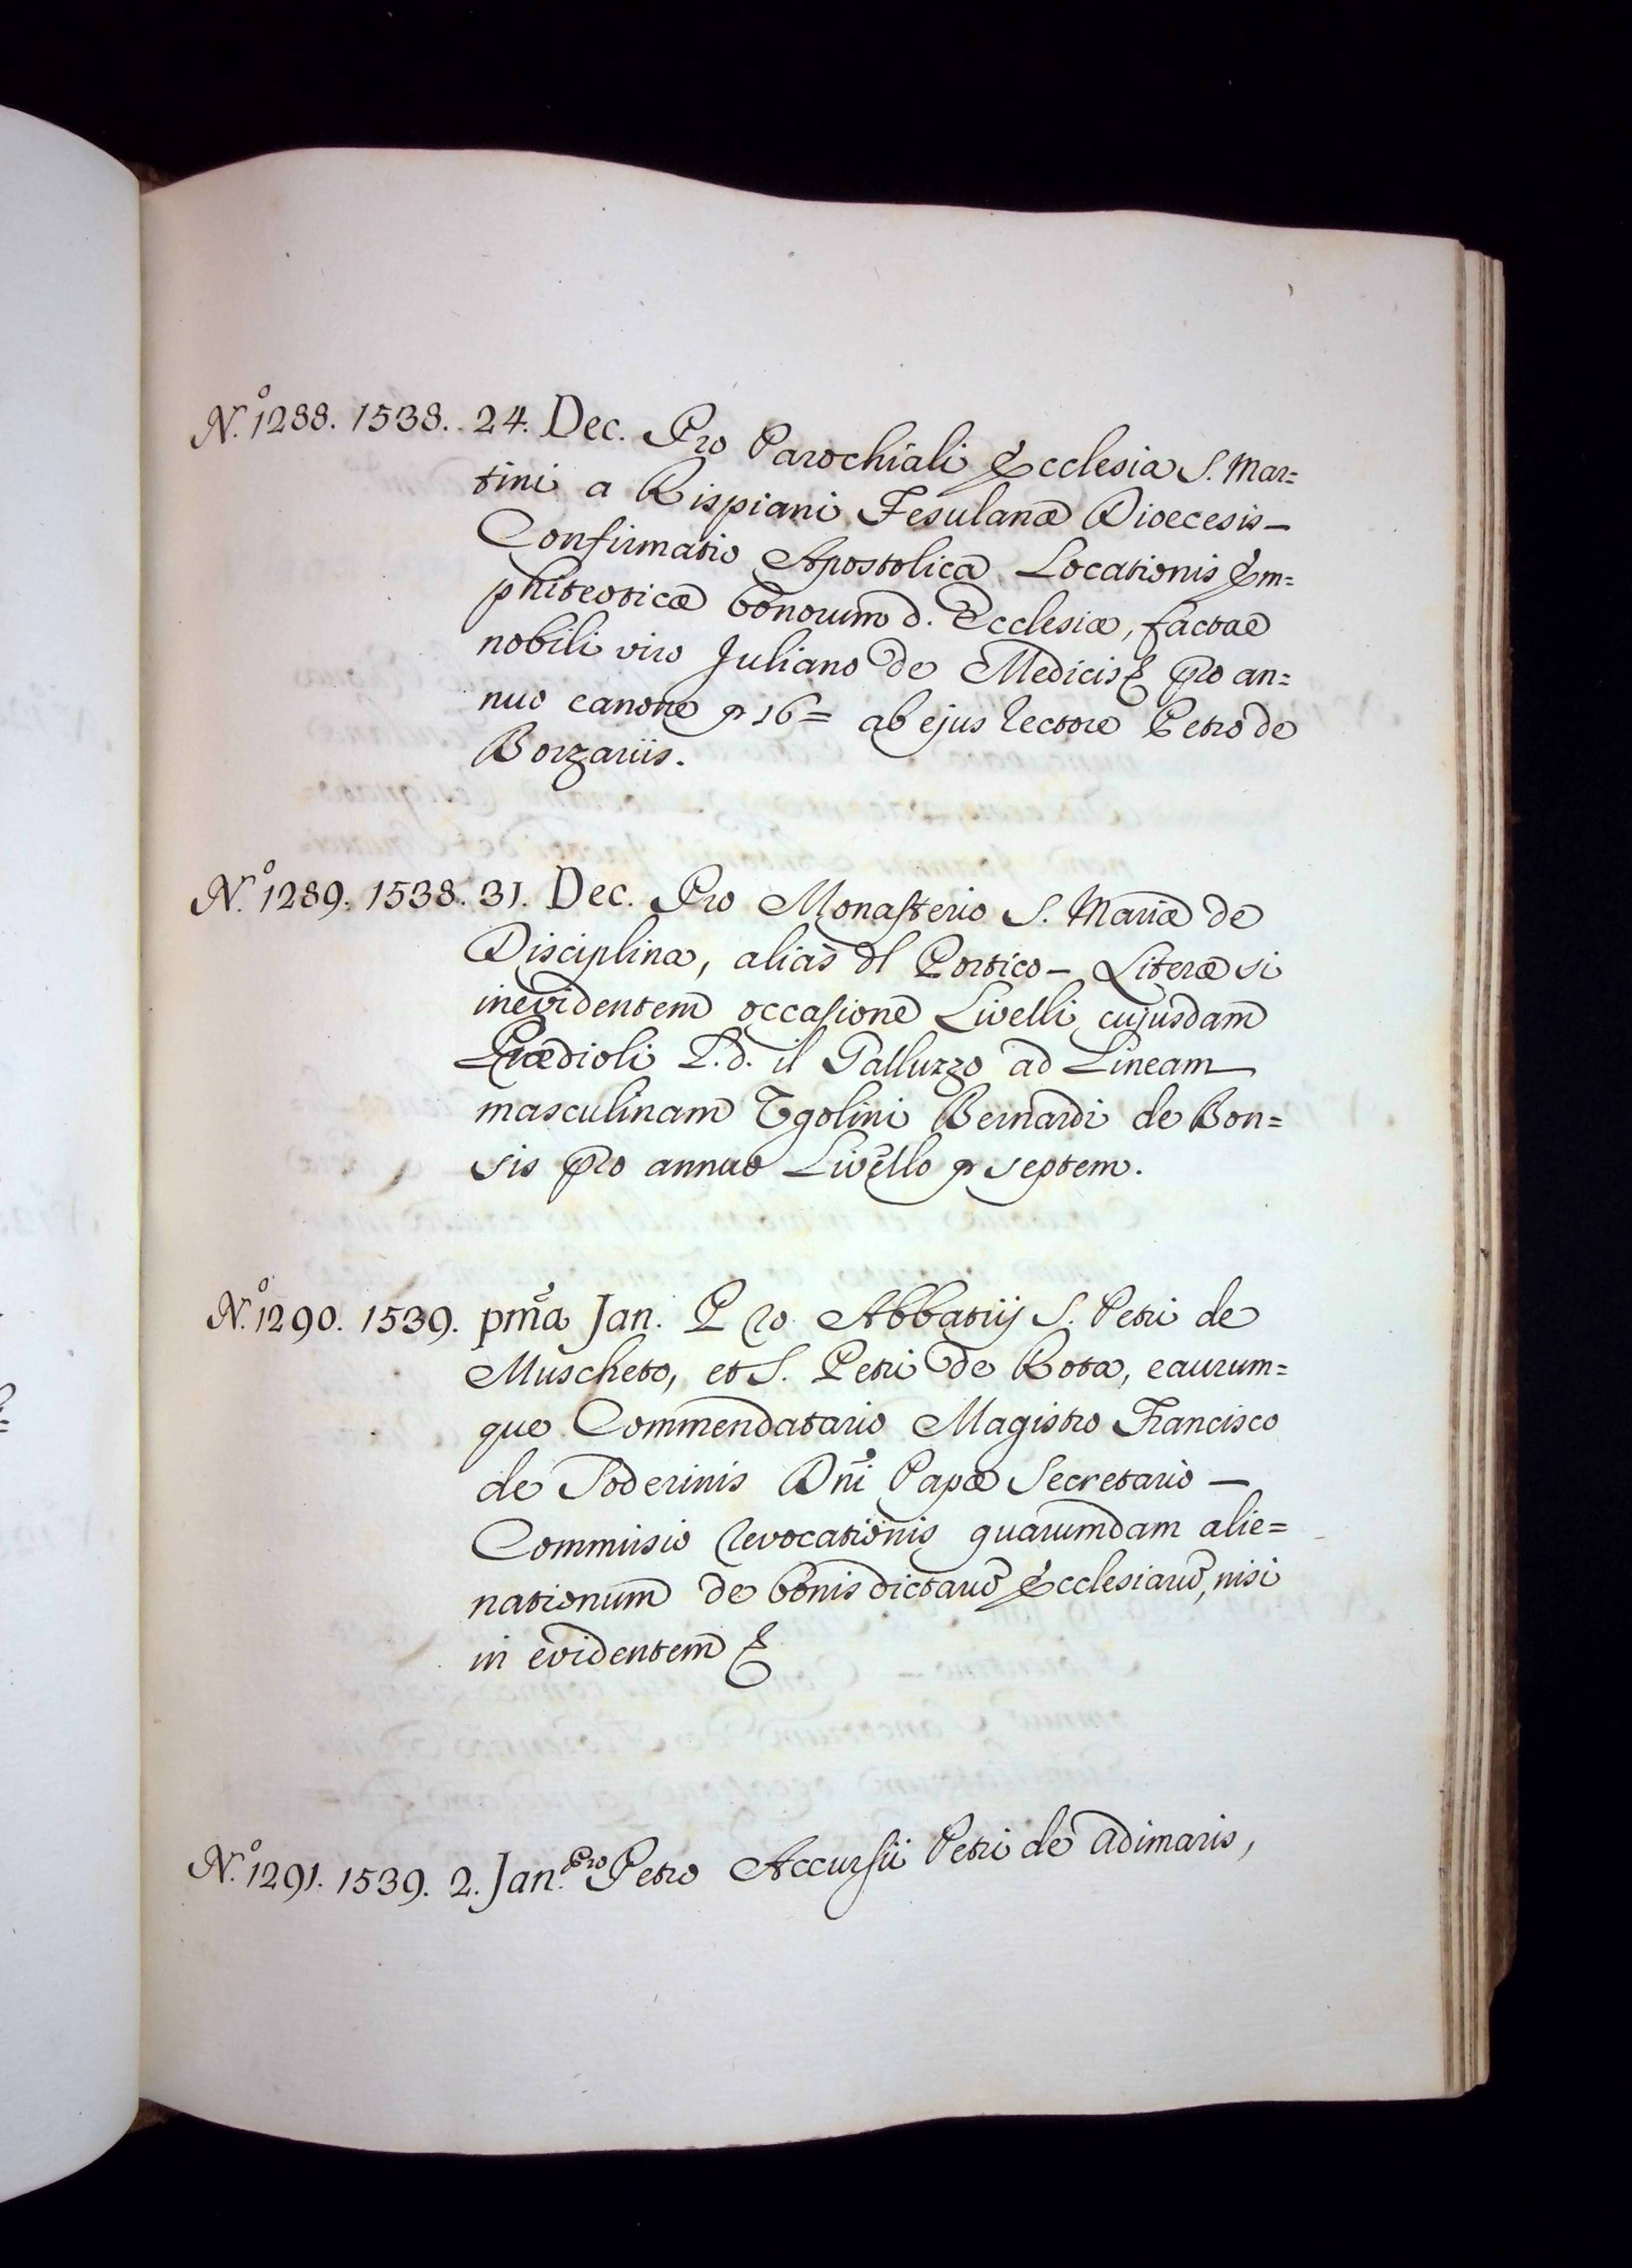 N.º 1288. 1538. 24. Dec. Pro Parochiali Ecclesia S. Mar=
tini a Rispiani Fesulanæ Dioecesis –
Confirmatio Apostolica Locationis Em=
phiteoticæ bonorum d. Ecclesiæ, factae
nobili viro Juliano de Medicis & pro an=
nuo canone 16= ab ejus Rectore Petro de
Borzariis.
N.º 1289. 1538. 31. Dec. Pro Monasterio S. Mariæ de
Disciplina, alias dl Portico – Literæ si
inevidentem occasione Livelli cujusdam
Prædioli L.d. il Galluzzo ad Lineam
masculinam Ugolini Bernardi de Bon=
sis pro annuo Livello septem.
N.º 1290. 1539. pma Jan. Pro Abbatiij S. Petri de
Muscheto, et S. Petri de Rota, eaurum=
que Commendatario Magistro Francisco
de Soderinis Dni Papæ Secretario –
Commisio Revocationis quarumdam alie=
nationum de bonis dictarũ Ecclesiarũ, nisi
in evidentem &
N.º 1291. 1539. 2. Jan. Pro Petro Accursii Petri de Adimaris,